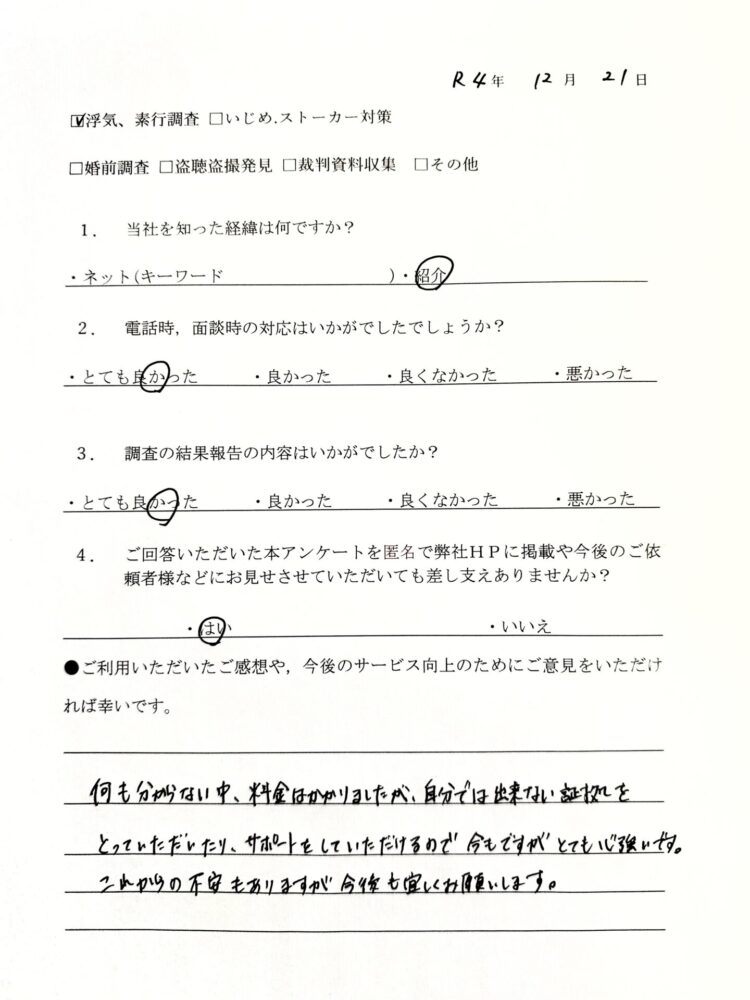 R4年 12月 21日
☑浮気、素行調査 □いじめ.ストーカー対策
□婚前調査 □盗聴盗撮発見 □裁判資料収集 □その他
1. 当社を知った経緯は何ですか？
・ネット(キーワード )・紹介
2. 電話時，面談時の対応はいかがでしたでしょうか？
・とても良かった ・良かった ・良くなかった ・悪かった
3. 調査の結果報告の内容はいかがでしたか？
・とても良かった ・良かった ・良くなかった ・悪かった
4. ご回答いただいた本アンケートを匿名で弊社ＨＰに掲載や今後のご依
頼者様などにお見せさせていただいても差し支えありませんか？
・はい ・いいえ
●ご利用いただいたご感想や，今後のサービス向上のためにご意見をいただけ
れば幸いです。
何も分からない中、料金はかかりましたが、自分では出来ない証拠を
とっていただいたり、サポートをしていただけるので今もですがとても心強いです。
これからの不安もありますが今後も宜しくお願いします。